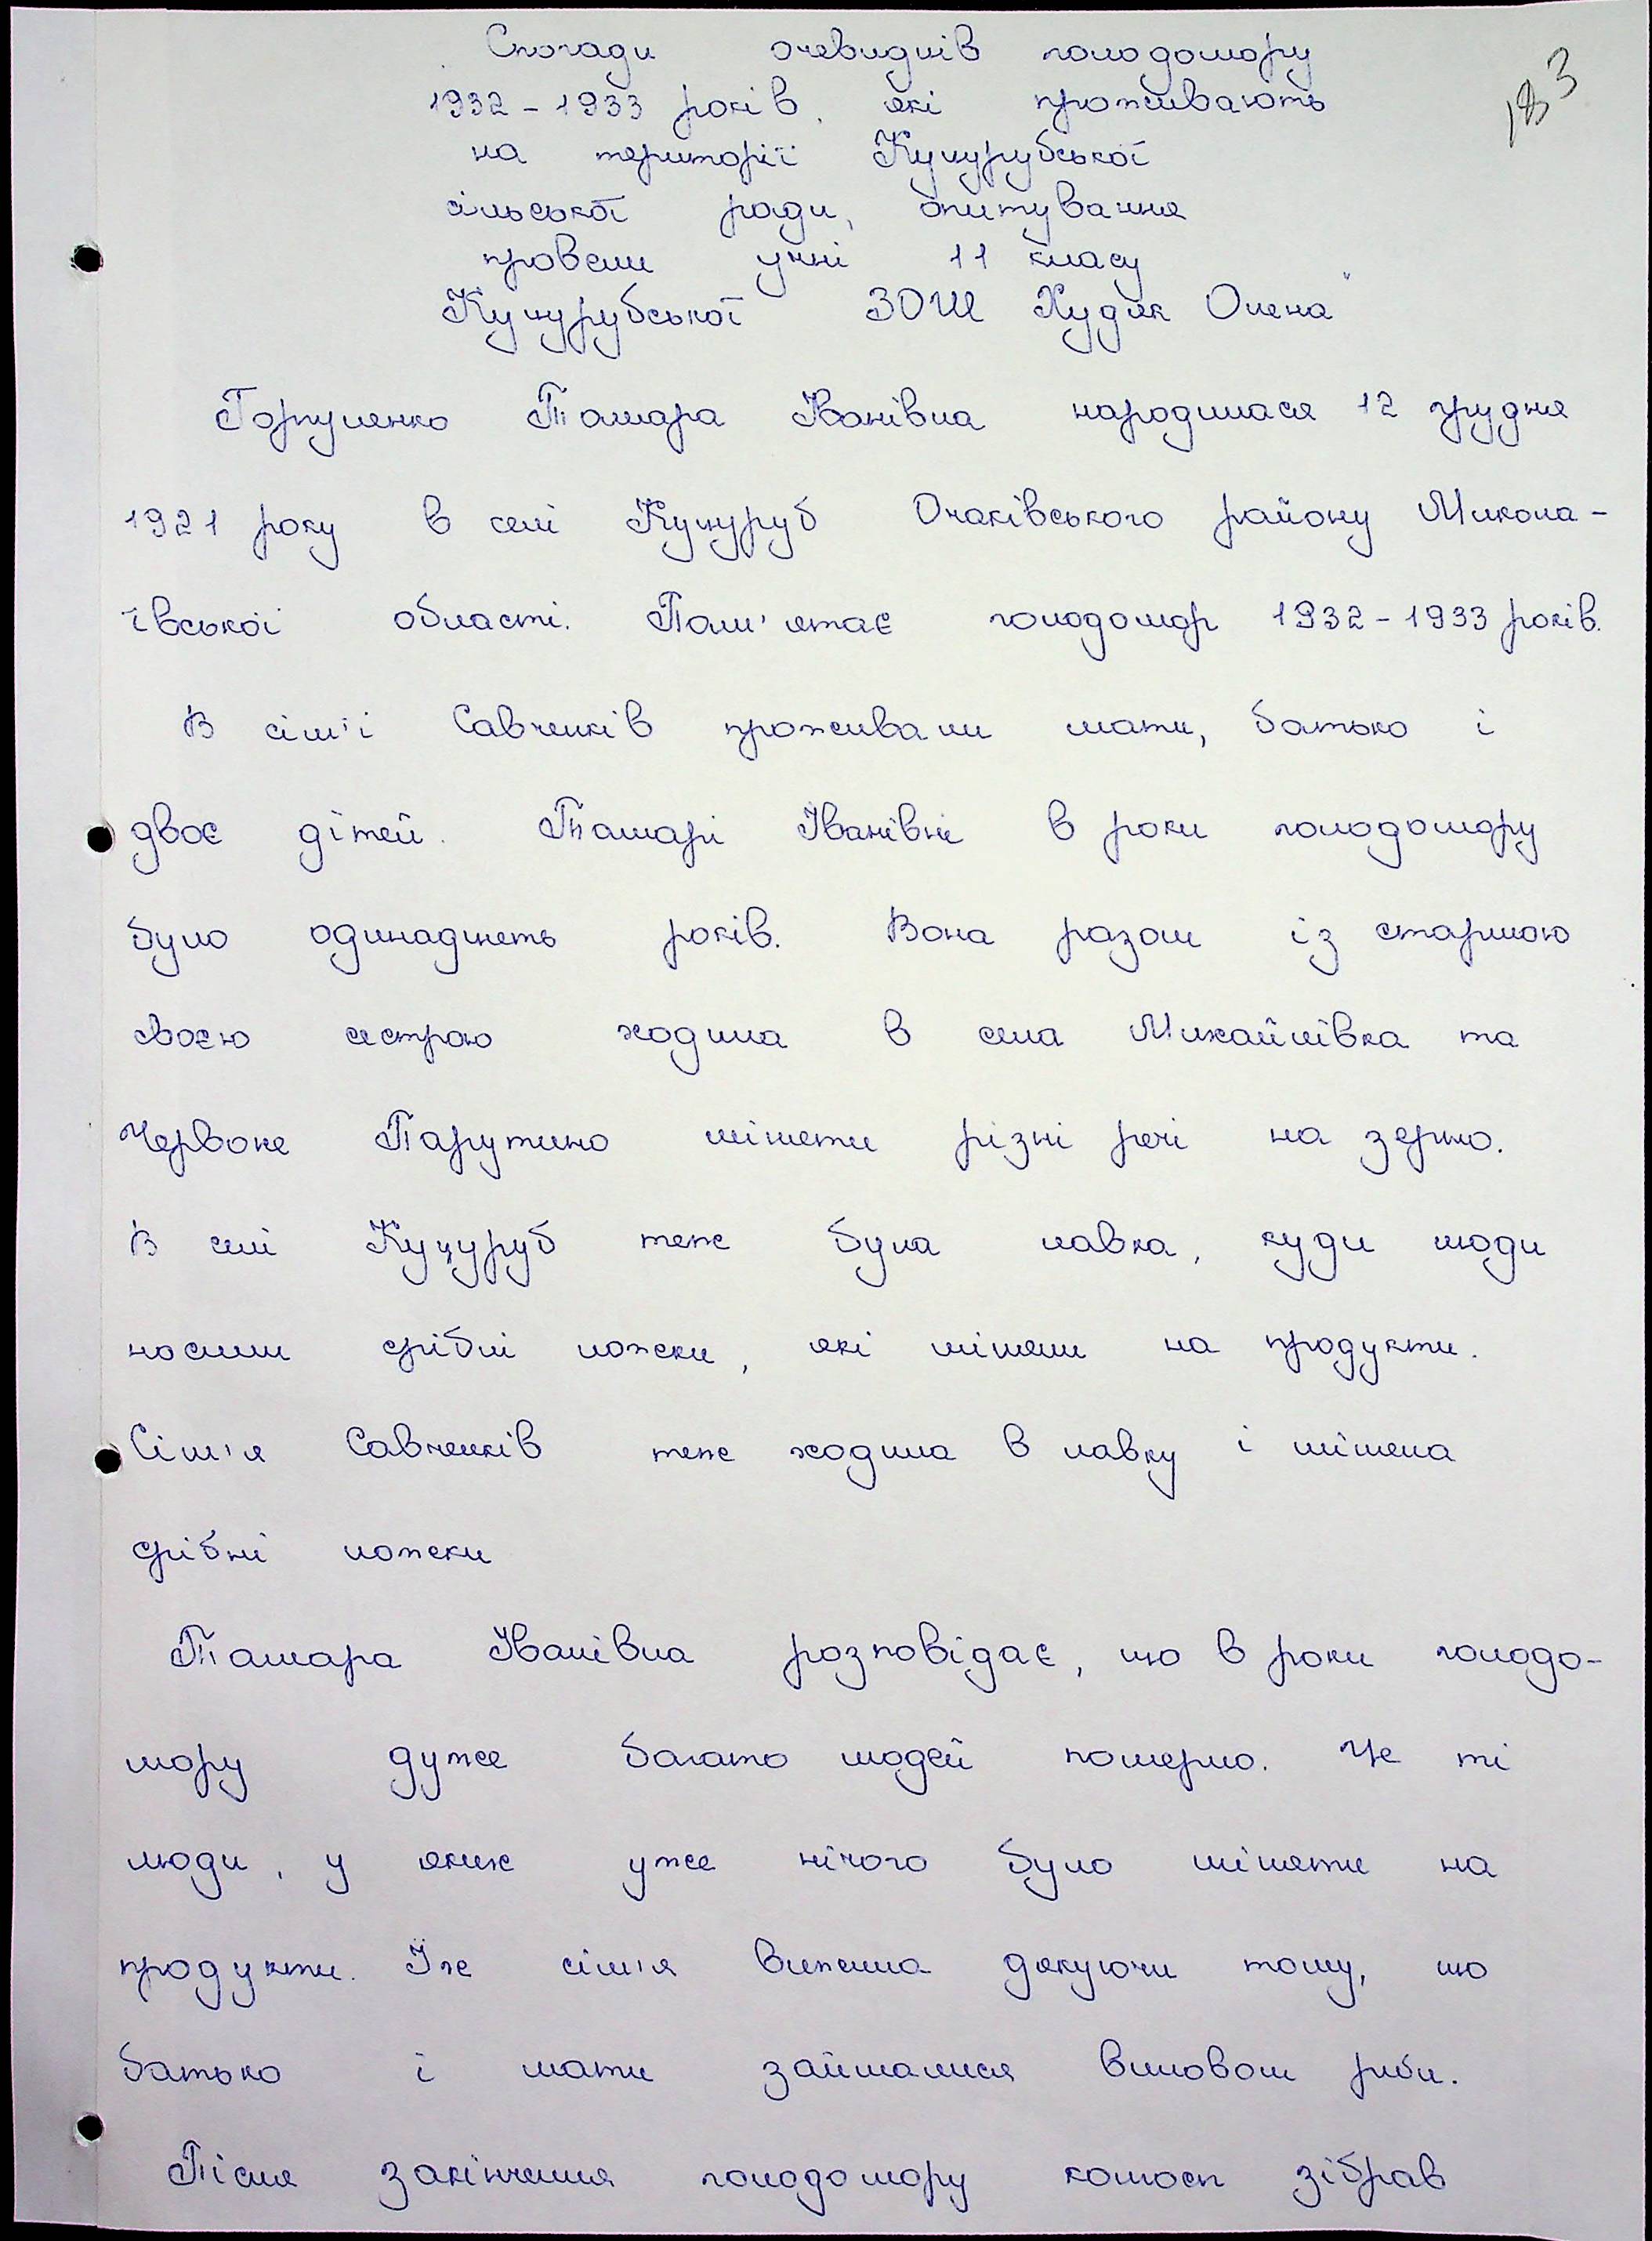 183
Спогади очевидців голодомору
1932-1933 років, які проживають
на території Куцурубської
сільської ради, опитування
провели учні 11 класу
Куцурубської ЗОШ Худяк Олена
Тамара Іванівна народилася 12 грудня
1921 року в селі Куцуруб Очаківського району Микола-
ївської області. Пам'ятає голодомор 1932-1933 років.
В сім'ї Савченків проживали мати, батько і
двоє дітей. Тамарі Іванівні в роки голодомору
було одинадцять років. Вона разом із старшою
своєю сестрою ходила в села Михайлівка та
Червоне Парутино міняти різні речі на зерно.
В селі Куцуруб теж була лавка, куди люди
носили срібні ложки, які міняли на продукти.
Сім'я Савченків теж ходила в лавку і міняла
срібні ложки
Тамара Іванівна розповідає, що в роки голодо-
мору дуже багато людей померло. Це ті
люди, у яких уже нічого було міняти на
продукти. Їх сім'я вижила дякуючи тому, що
батько і мати займалися виловом риби.
Після закінчення голодомору колосп зібрав